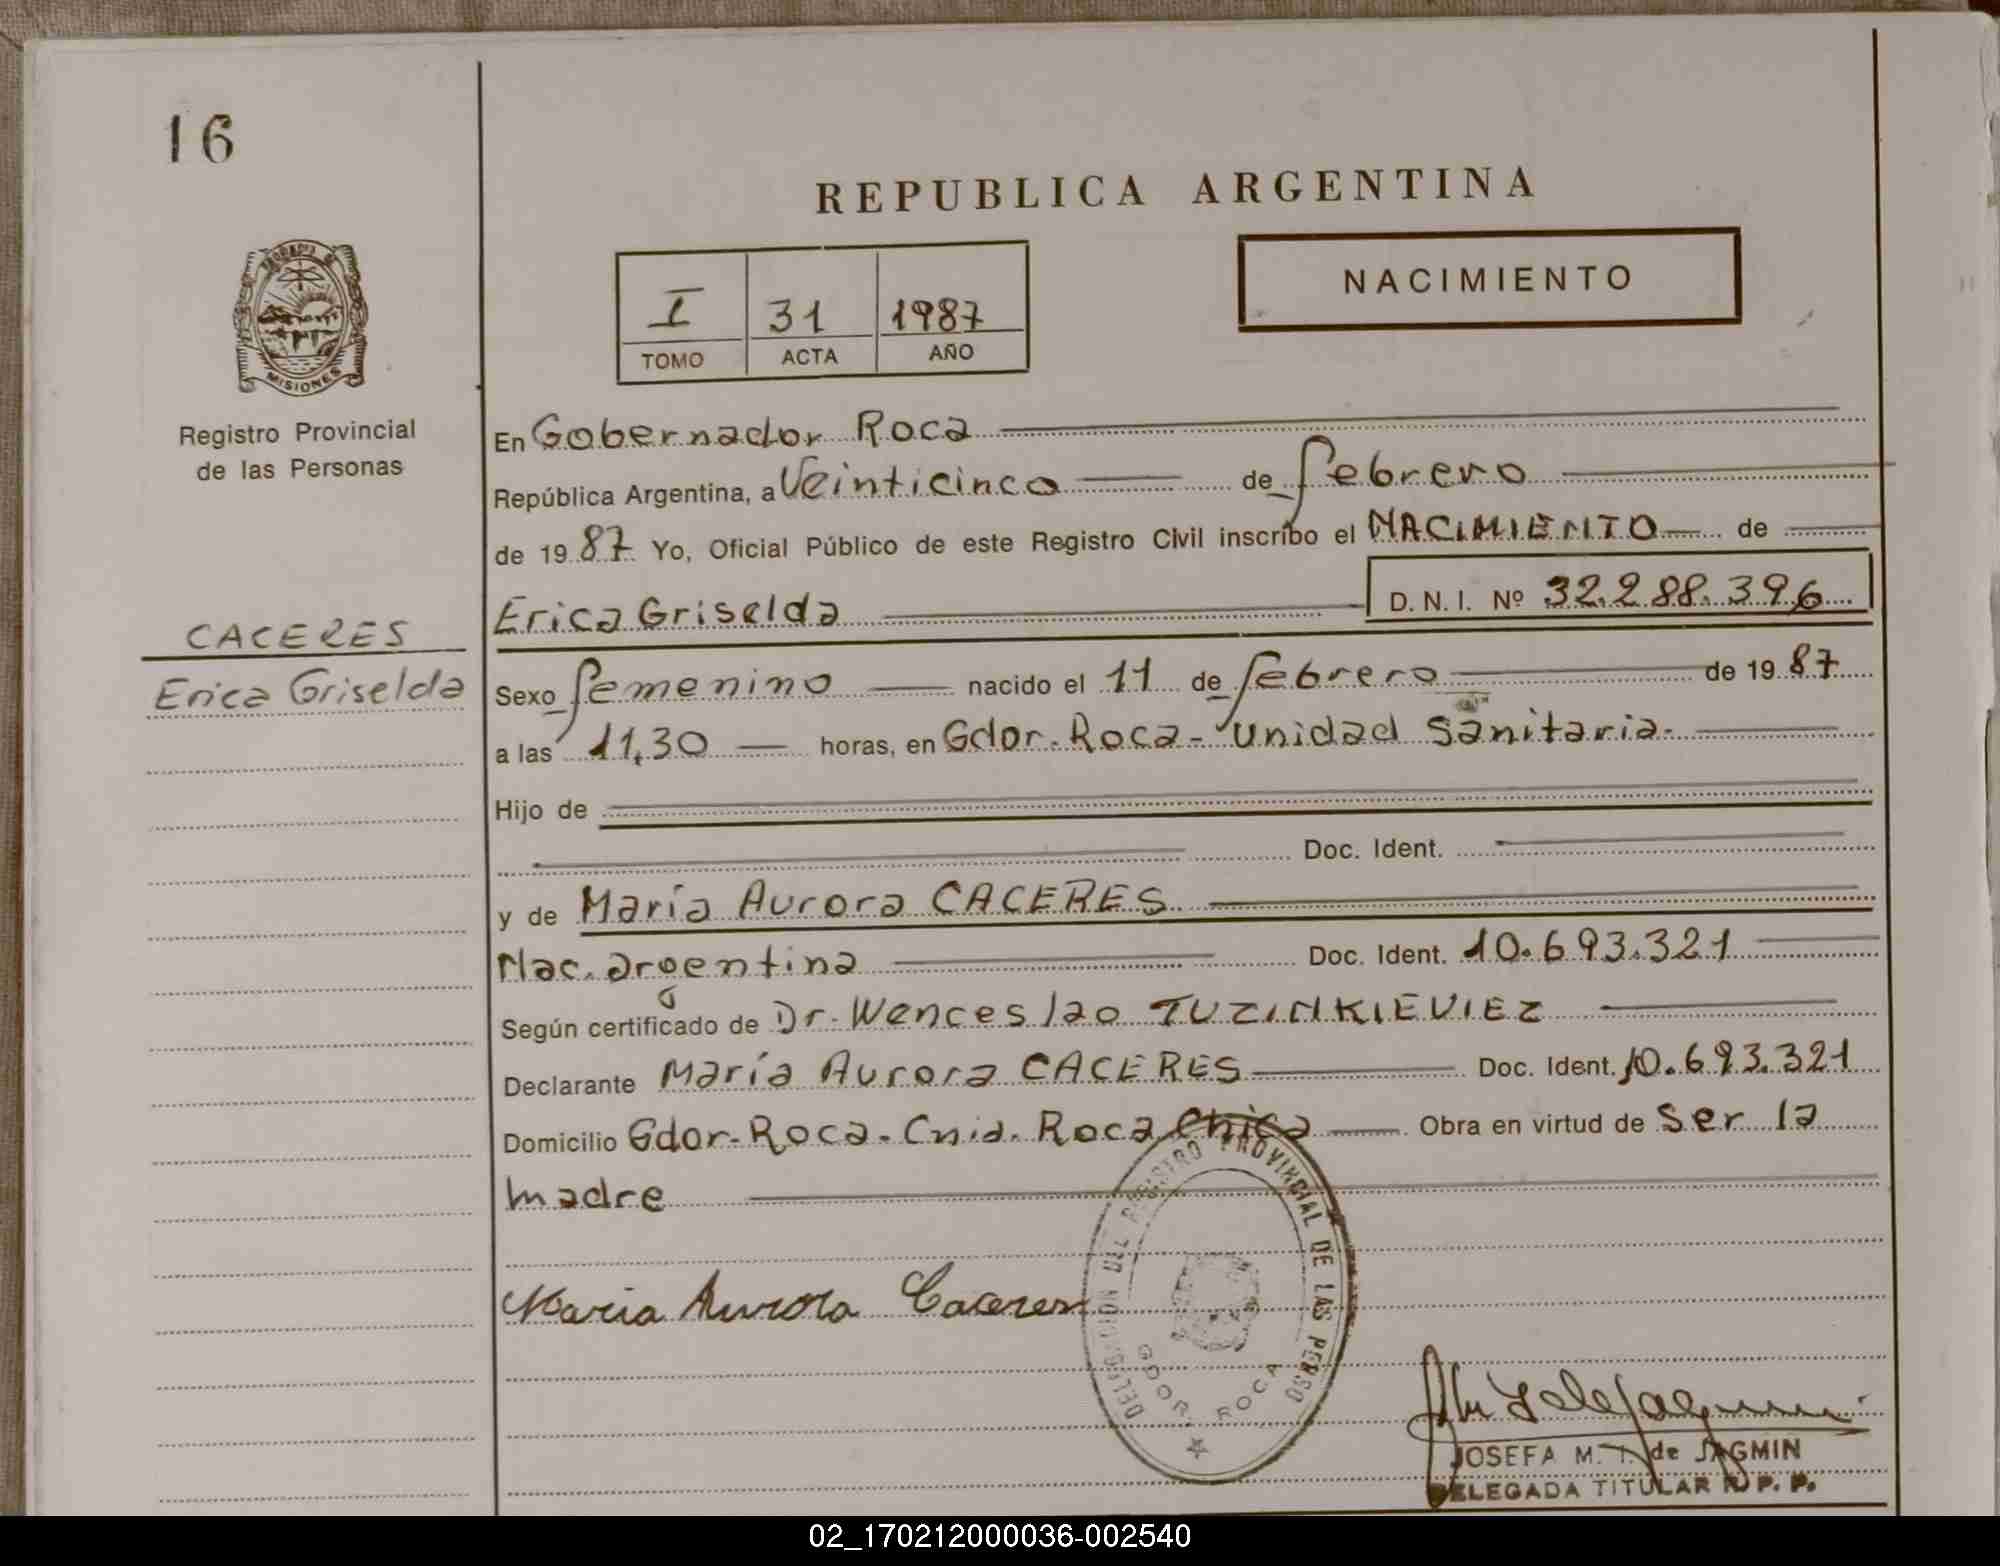 16
REPUBLICA ARGENTINA
NACIMIENTO
I 31 1987
TOMO ACTA AÑO
MISIONES
Registro Provincial
de las Personas
CACERES
Erica Griselda
En Gobernador Roca
República Argentina, a Veinticinco de febrero
de 1987 Yo, Oficial Público de este Registro Civil inscribo el NACIMIENTO de
Erica Griselda D.N.I. Nº 32.288.396
Sexo femenino nacido el 11 de febrero de 1987
a las 11,30 horas, en Gdor. Roca - Unidad Sanitaria.
Hijo de
Doc. Ident.
y de María Aurora CACERES
Nac. argentina Doc. Ident. 10.693.321
Según certificado de Dr. Wenceslao TUZINKIEVIEZ
Declarante María Aurora CACERES Doc. Ident. 10.693.321
Domicilio Gdor. Roca. Cnia. Roca Chica Obra en virtud de ser la
madre
Maria Aurora Caceres
DELEGACION DEL REGISTRO PROVINCIAL DE LAS PERSO
GDOR. ROCA
JOSEFA M. T. de JAGMIN
DELEGADA TITULAR R. P. P.
02_170212000036-002540